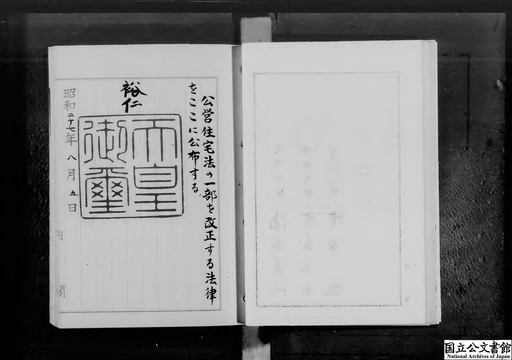 公営住宅法の一部を改正する法律
をここに公布する
裕仁
天皇
御璽
昭和二十七年八月五日
内閣
国立公文書館
National Archives of Japan